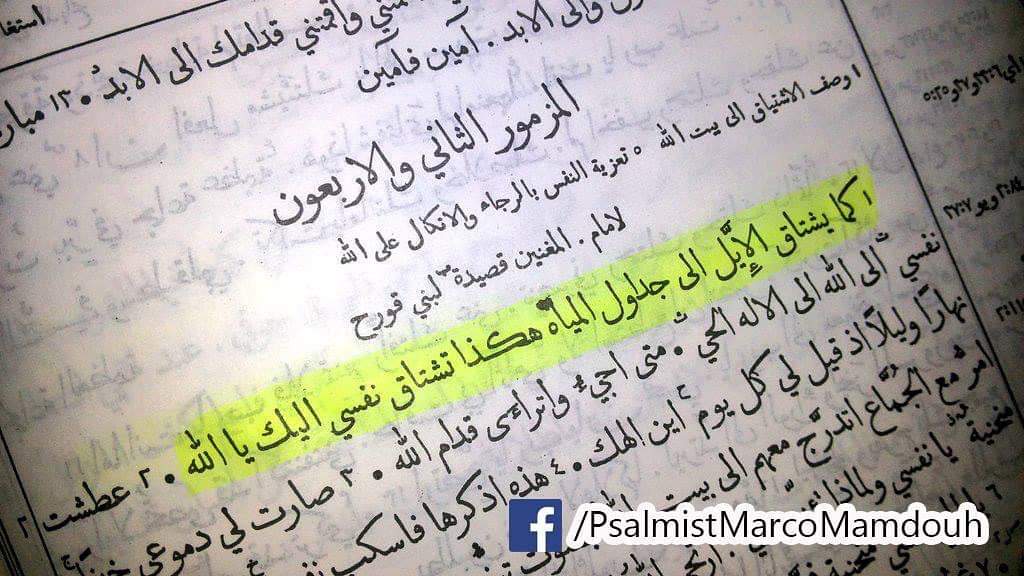 استغا
واقمتني قدامك الى الابد ٠ ١٣ مبار
والى الابد ٠ آمين فآمين
المزمور الثاني والاربعون
١ وصف الاشتياق الى بيت الله ٥ تعزية النفس بالرجاء والاتكال على الله
لامام . المغنين قصيدة لبني قورح
١ كما يشتاق الإيَّل الى جداول المياه هكذا تشتاق نفسي اليك يا الله ٠ ٢ عطشت
نفسي الى الله الى الاله الحي ٠ متى اجيء واتراءى قدام الله ٠ ٣ صارت لي دموعي خبزًا
نهارًا وليلًا اذ قيل لي كل يوم اين الهك ٠ ٤ هذه اذكرها فاسكب
امر مع الجُمَّاع اتدرَّج معهم الى بيت
منحنية يا نفسي ولماذا
/PsalmistMarcoMamdouh